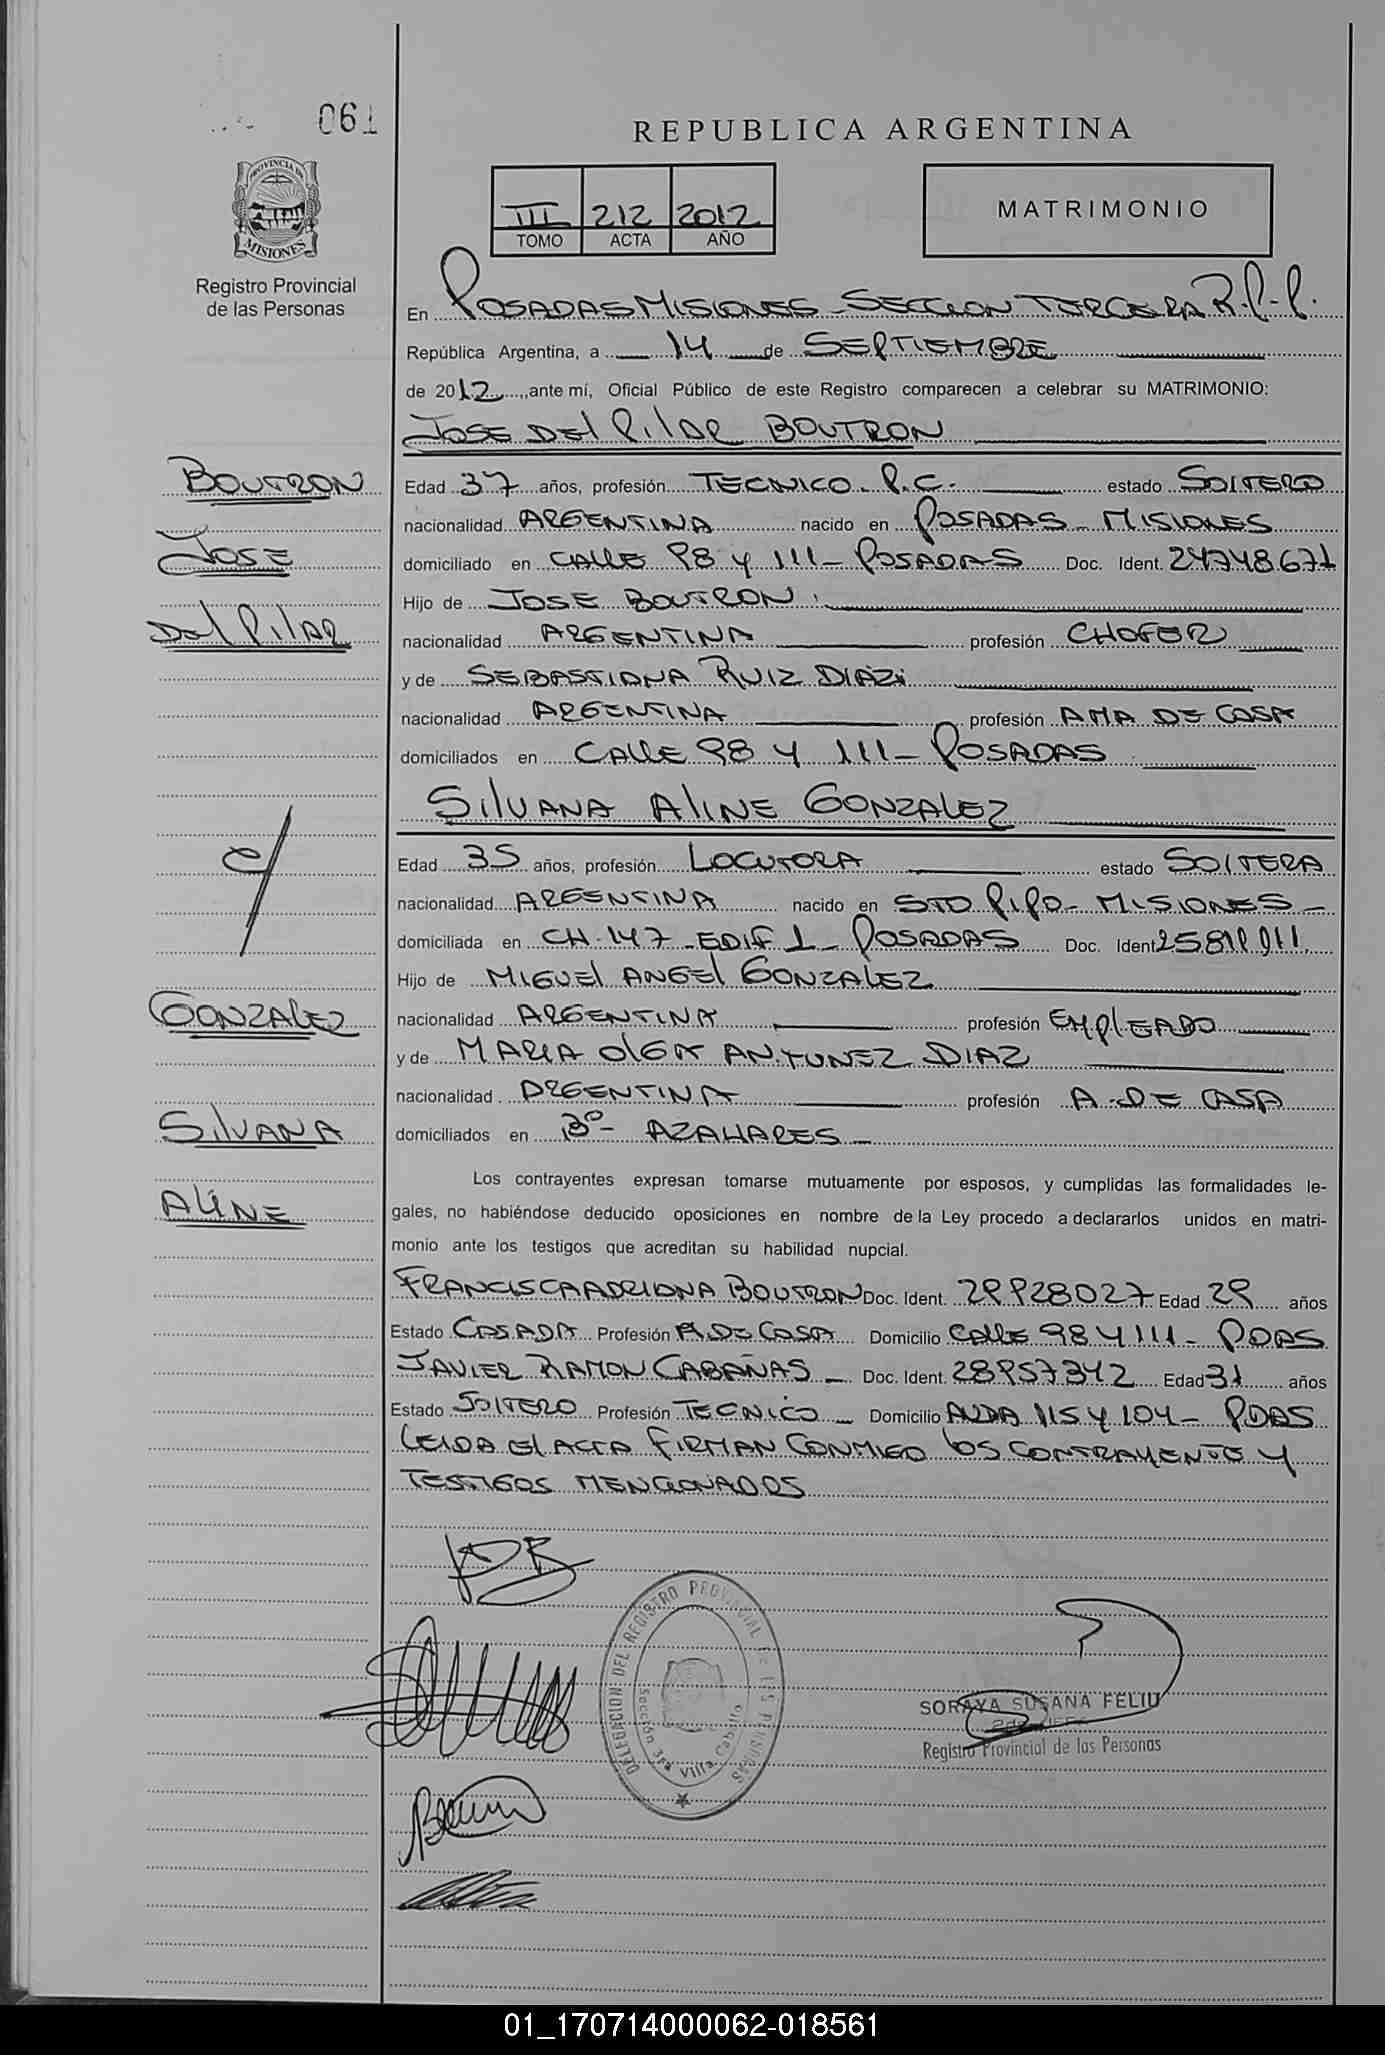 061
REPUBLICA ARGENTINA
PROVINCIA DE
MISIONES
Registro Provincial
de las Personas
III 212 2012
TOMO ACTA AÑO
MATRIMONIO
En POSADAS MISIONES - SECCION TERCERA R.P.P.
República Argentina, a 14 de SEPTIEMBRE
de 2012, ante mí, Oficial Público de este Registro comparecen a celebrar su MATRIMONIO:
JOSE DEL PILAR BOUTRON
BOUTRON
Edad 37 años, profesión TECNICO P.C. estado SOLTERO
nacionalidad ARGENTINA nacido en POSADAS - MISIONES
JOSE
domiciliado en CALLE 98 y 111 - POSADAS Doc. Ident. 24748671
Hijo de JOSE BOUTRON
DEL PILAR
nacionalidad ARGENTINA profesión CHOFER
y de SEBASTIANA RUIZ DIAZ
nacionalidad ARGENTINA profesión AMA DE CASA
domiciliados en CALLE 98 Y 111 - POSADAS
SILVANA ALINE GONZALEZ
c/
Edad 35 años, profesión LOCUTORA estado SOLTERA
nacionalidad ARGENTINA nacido en STO PIPO - MISIONES -
domiciliada en CH. 147 - EDIF 1 - POSADAS Doc. Ident
Hijo de MIGUEL ANGEL GONZALEZ
GONZALEZ
nacionalidad ARGENTINA profesión EMPLEADO
y de MARIA OLGA ANTUNEZ DIAZ
nacionalidad ARGENTINA profesión A. DE CASA
SILVANA
domiciliados en Bº - AZAHARES -
Los contrayentes expresan tomarse mutuamente por esposos, y cumplidas las formalidades le-
ALINE
gales, no habiéndose deducido oposiciones en nombre de la Ley procedo a declararlos unidos en matri-
monio ante los testigos que acreditan su habilidad nupcial.
FRANCISCA ADRIANA BOUTRON Doc. Ident. 29928027 Edad 29 años
Estado CASADA Profesión A. DE CASA Domicilio CALLE 98 Y 111 - PDAS
JAVIER RAMON CABAÑAS - Doc. Ident. 28957342 Edad 31 años
Estado SOLTERO Profesión TECNICO - Domicilio AVDA 115 Y 104 - PDAS
LEIDA EL ACTA FIRMAN CONMIGO LOS CONTRAYENTE Y
TESTIGOS MENCIONADOS
DELEGACION DEL REGISTRO PROVINCIAL DE LAS PERSONAS
Sección 3ra Villa Cabello
SORAYA SUSANA FELIU
Registro Provincial de las Personas
01_170714000062-018561